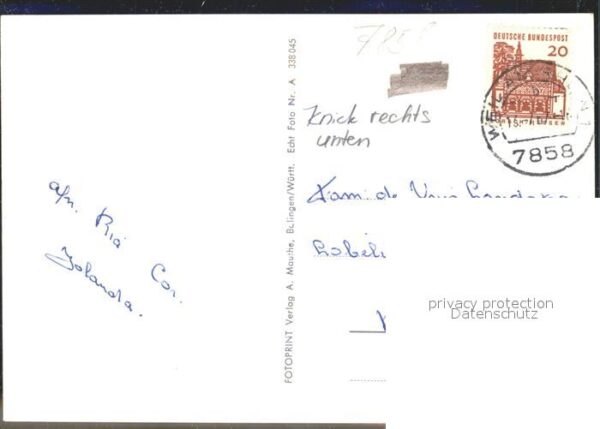 7858
DEUTSCHE BUNDESPOST
20
7858
Knick rechts
unten
afz. Ria Cor.
Jolanda.
FOTOPRINT Verlag A. Mauthe, Balingen/Württ. Echt Foto Nr. A 338 045
Fam. de
privacy protection
Datenschutz